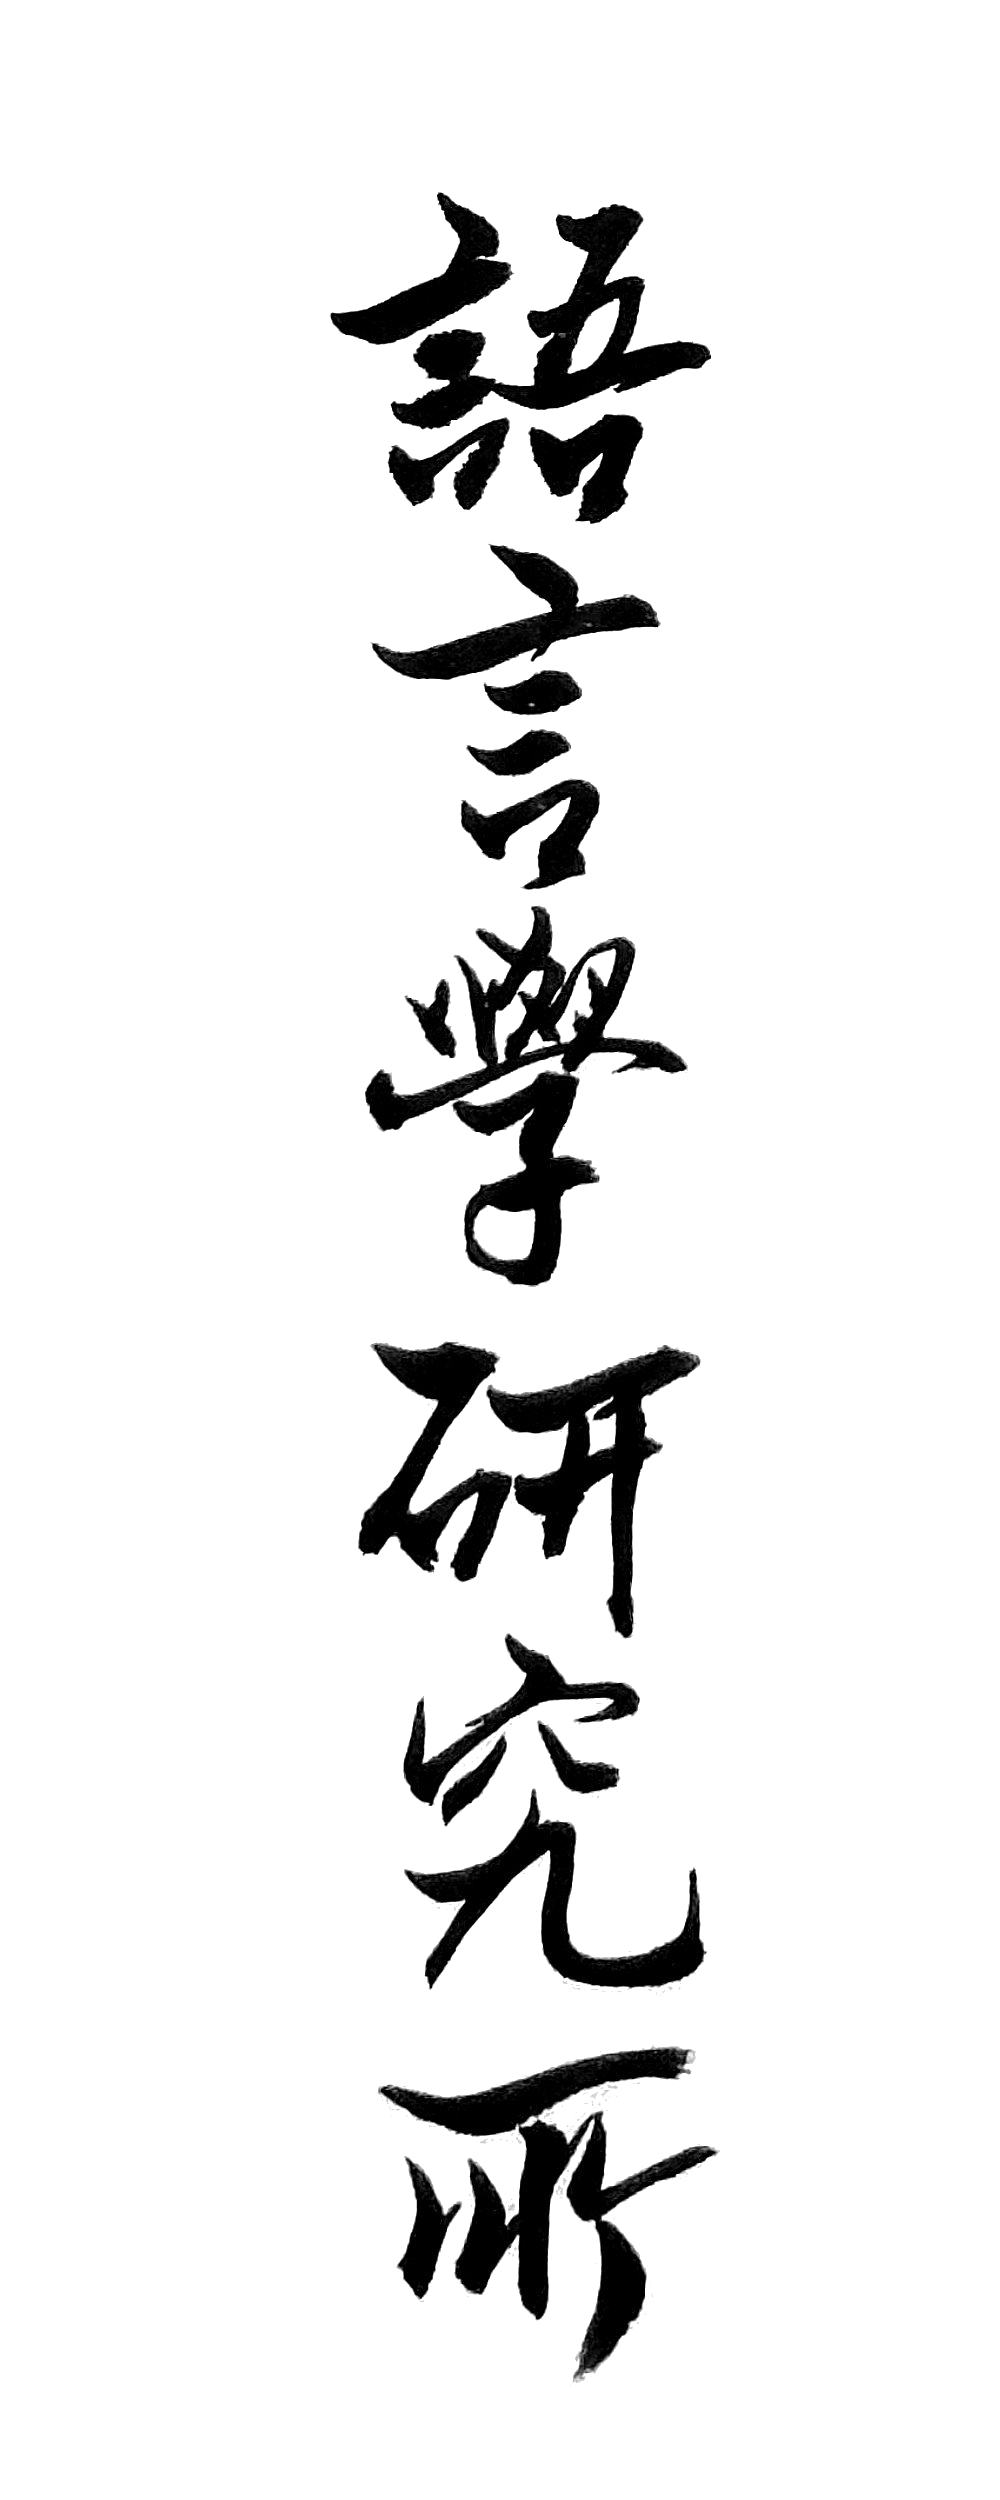 語言學研究所